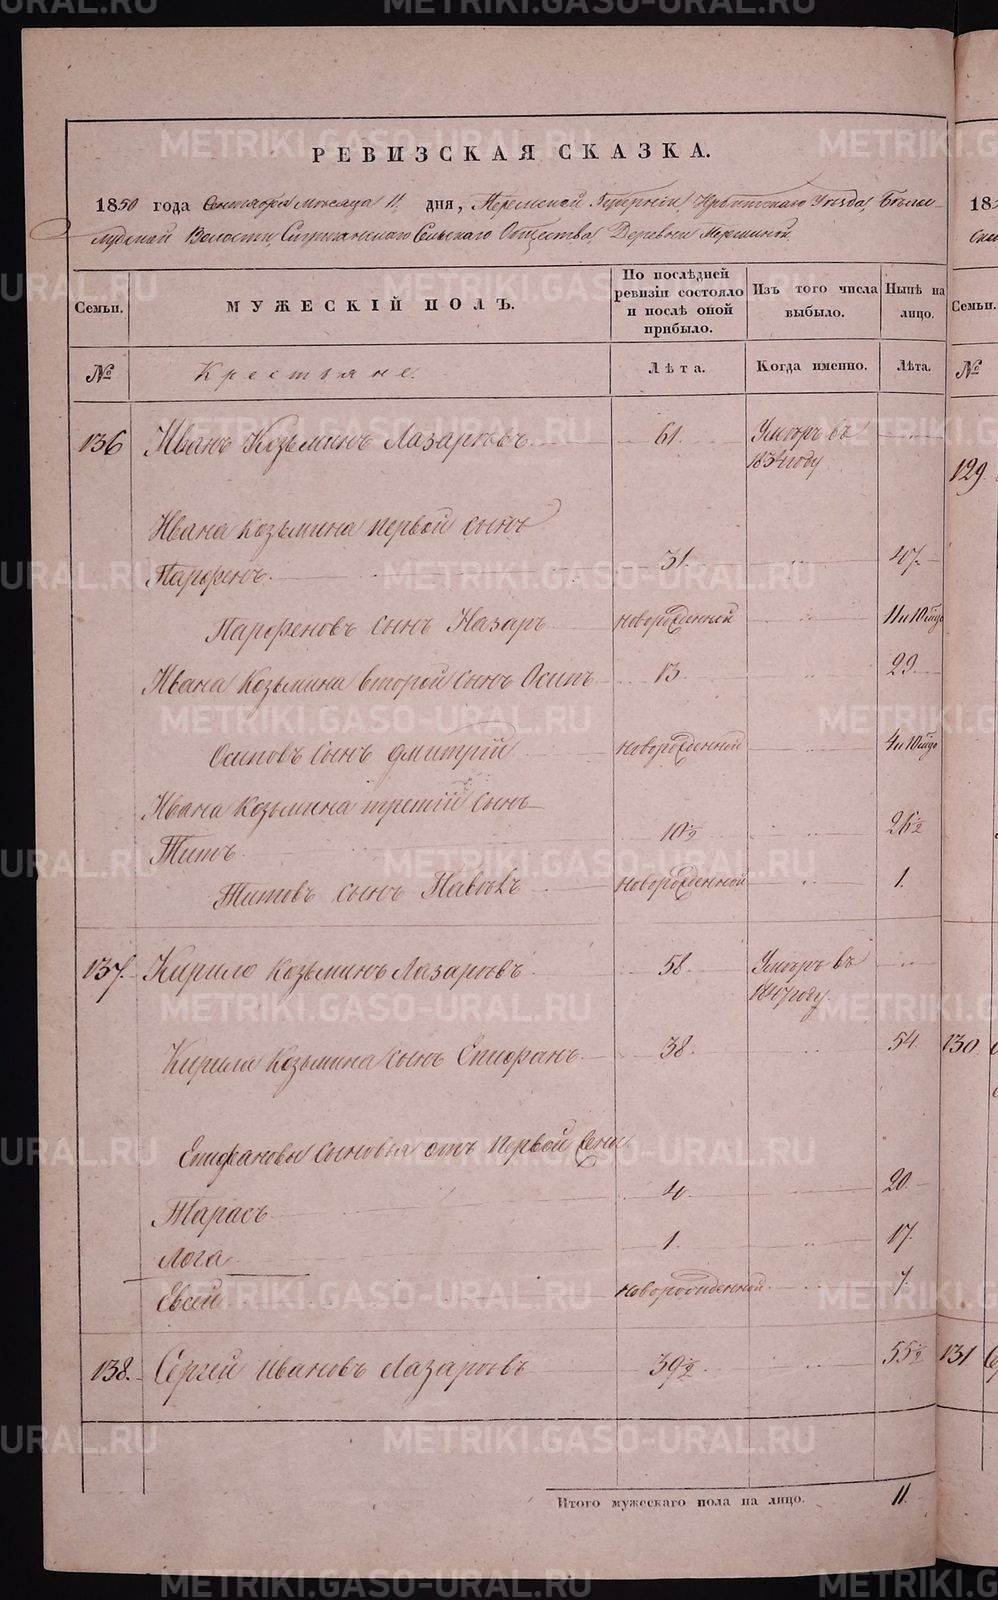 METRIKI.GASO-URAL.RU
РЕВИЗСКАЯ СКАЗКА.
1850 года Сентября месяца 11 дня, Пермской Губернии, Ирбитского Уезда, Белослудской Волости, Сельскаго Общества, Деревни
Семьи. МУЖЕСКІЙ ПОЛЪ. По послѣдней ревизіи состояло и послѣ оной прибыло. Изъ того числа выбыло. Нынѣ на лицо. Семьи.
№ Крестьяне. Лѣта. Когда именно. Лѣта. №
136 Иванъ Козьминъ Лазаревъ 61. Умеръ въ 1834 году
129.
Ивана Козьмина первой сынъ
Парфенъ. 31. 47.
Парфеновъ сынъ Назаръ новорожденной 11 и 10
Ивана Козьмина второй сынъ Осипъ 13. 29.
Осиповъ сынъ Дмитрій новорожденной 4 и 10
Ивана Козьмина третій сынъ
Титъ 10½ 26½
Титовъ сынъ новорожденной 1.
137. Кирило Козьминъ Лазаревъ 58. Умеръ въ 1840 году.
Кирила Козьмина сынъ Епифанъ. 38. 54. 130
Епифановы сыновья отъ первой жены
Тарасъ 4. 20.
Лога 1. 17.
Евсей новорожденной. 7.
138. Сергей Ивановъ Лазаревъ 39½ 55½ 131
Итого мужескаго пола на лицо. 11.